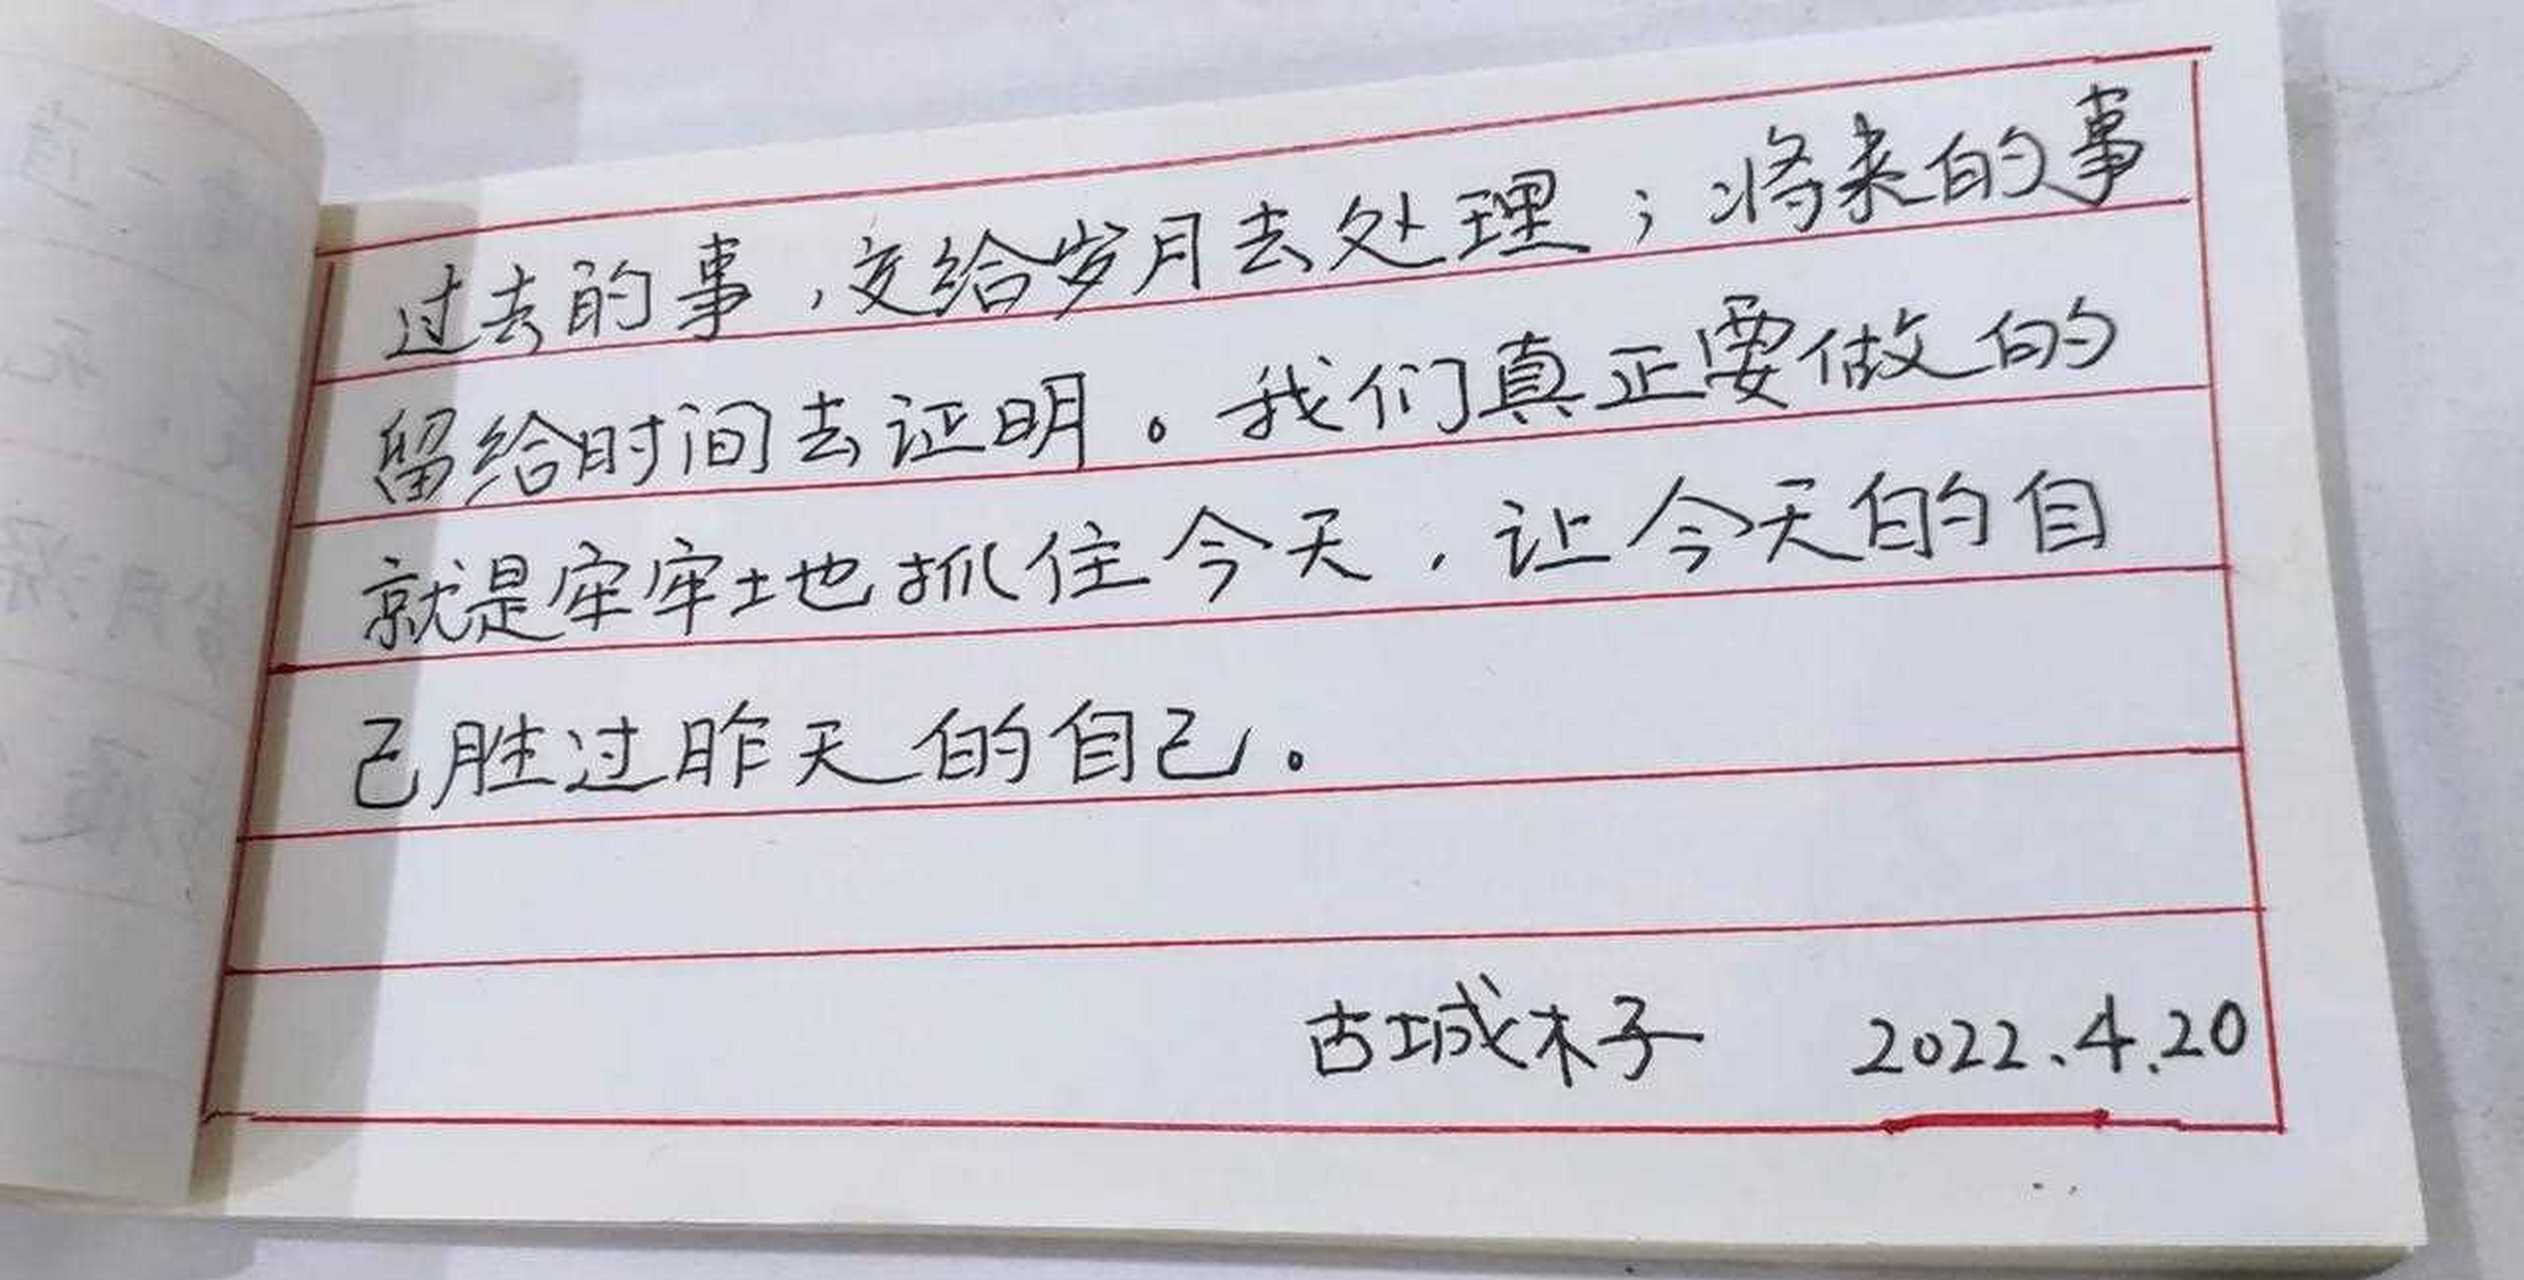 过去的事,交给岁月去处理;将来的事
留给时间去证明。我们真正要做的
就是牢牢地抓住今天,让今天的自
己胜过昨天的自己。
古城木子 2022.4.20